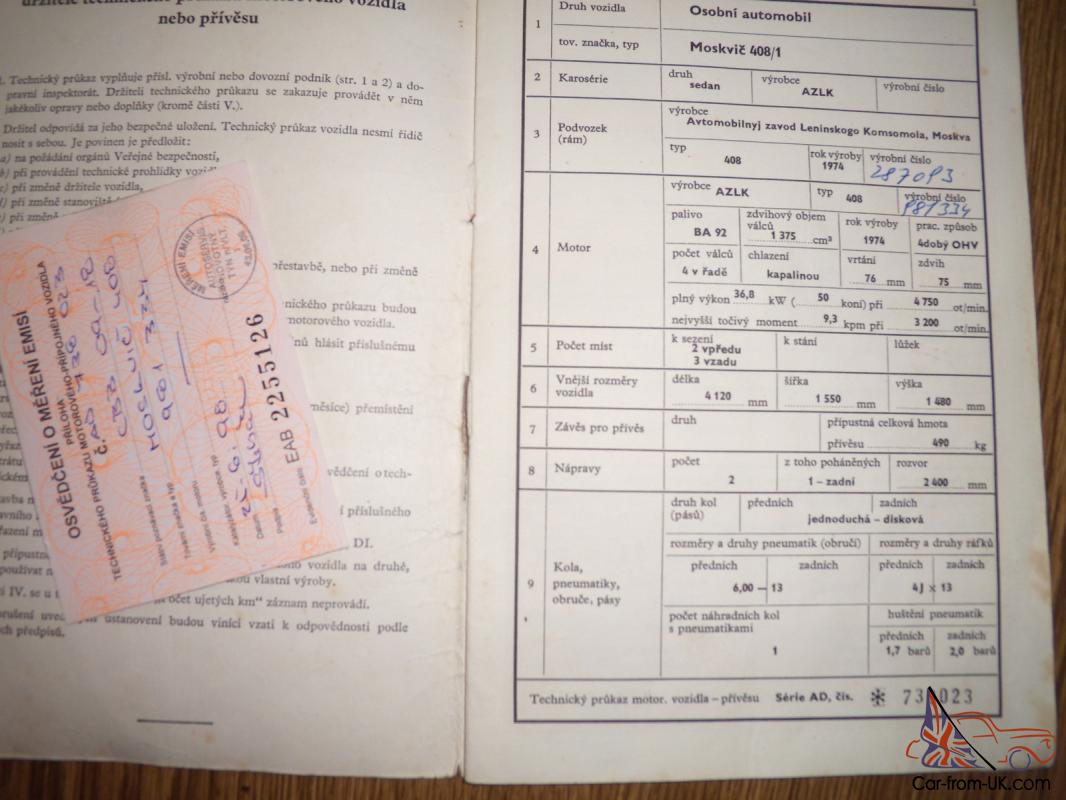 držitele technického průkazu motorového vozidla
nebo přívěsu
1. Technický průkaz vyplňuje přísl. výrobní nebo dovozní podnik (str. 1 a 2) a do-
pravní inspektorát. Držiteli technického průkazu se zakazuje provádět v něm
jakékoliv opravy nebo doplňky (kromě části V.).
Držitel odpovídá za jeho bezpečné uložení. Technický průkaz vozidla nesmí řidič
nosit s sebou. Je povinen je předložit:
a) na požádání orgánů Veřejné bezpečnosti,
b) při provádění technické prohlídky
c) při změně držitele vozidla,
d) při změně stanoviště
e) při změně
přestavbě, nebo při změně
technického průkazu budou
motorového vozidla.
hlásit příslušnému
přemístění
příslušného
DI.
vozidla na druhé,
vlastní výroby.
počet ujetých km“ záznam neprovádí.
ustanovení budou viníci vzati k odpovědnosti podle
předpisů.
OSVĚDČENÍ O MĚŘENÍ EMISÍ
PŘÍLOHA
TECHNICKÉHO PRŮKAZU MOTOROVÉHO-PŘÍPOJNÉHO VOZIDLA
č. AD 738 023
CBD 09-18
MOSKVIČ 408
981 334
Státní poznávací značka
Tovární značka a typ
Výrobní čís. motoru
Katalyzátor výrobce, typ
Datum
Podpis
Evidenční číslo EAB 2255126
MĚŘENÍ EMISÍ
AUTOSERVIS
NOVOTNÝ
TÝN N/VLT.
1
Druh vozidla
Osobní automobil
tov. značka, typ
Moskvič 408/1
2 Karosérie
druh
sedan
výrobce
AZLK
výrobní číslo
3 Podvozek
(rám)
výrobce
Avtomobilnyj zavod Leninskogo Komsomola, Moskva
typ
408
rok výroby
1974
výrobní číslo
287093
4 Motor
výrobce AZLK
typ 408
výrobní číslo
981334
palivo
BA 92
zdvihový objem
válců
1 375 cm³
rok výroby
1974
prac. způsob
4dobý OHV
počet válců
4 v řadě
chlazení
kapalinou
vrtání
76 mm
zdvih
75 mm
plný výkon 36,8 kW ( 50 koní) při 4 750 ot/min.
nejvyšší točivý moment 9,3 kpm při 3 200 ot/min.
5 Počet míst
k sezení
2 vpředu
3 vzadu
k stání
lůžek
6 Vnější rozměry
vozidla
délka
4 120 mm
šířka
1 550 mm
výška
1 480 mm
7 Závěs pro přívěs
druh
přípustná celková hmota
přívěsu 490 kg
8 Nápravy
počet
2
z toho poháněných
1 – zadní
rozvor
2 400 mm
9 Kola,
pneumatiky,
obruče, pásy
druh kol
(pásů)
předních
zadních
jednoduchá – disková
rozměry a druhy pneumatik (obručí)
rozměry a druhy ráfků
předních
zadních
předních
zadních
6,00 — 13
4J × 13
počet náhradních kol
s pneumatikami
1
huštění pneumatik
předních
1,7 barů
zadních
2,0 barů
Technický průkaz motor. vozidla – přívěsu Série AD, čís. ✻ 73 023
Car-from-UK.com